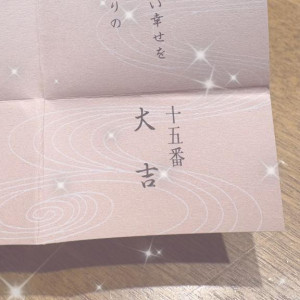 い幸せを
りの
十五番
大吉